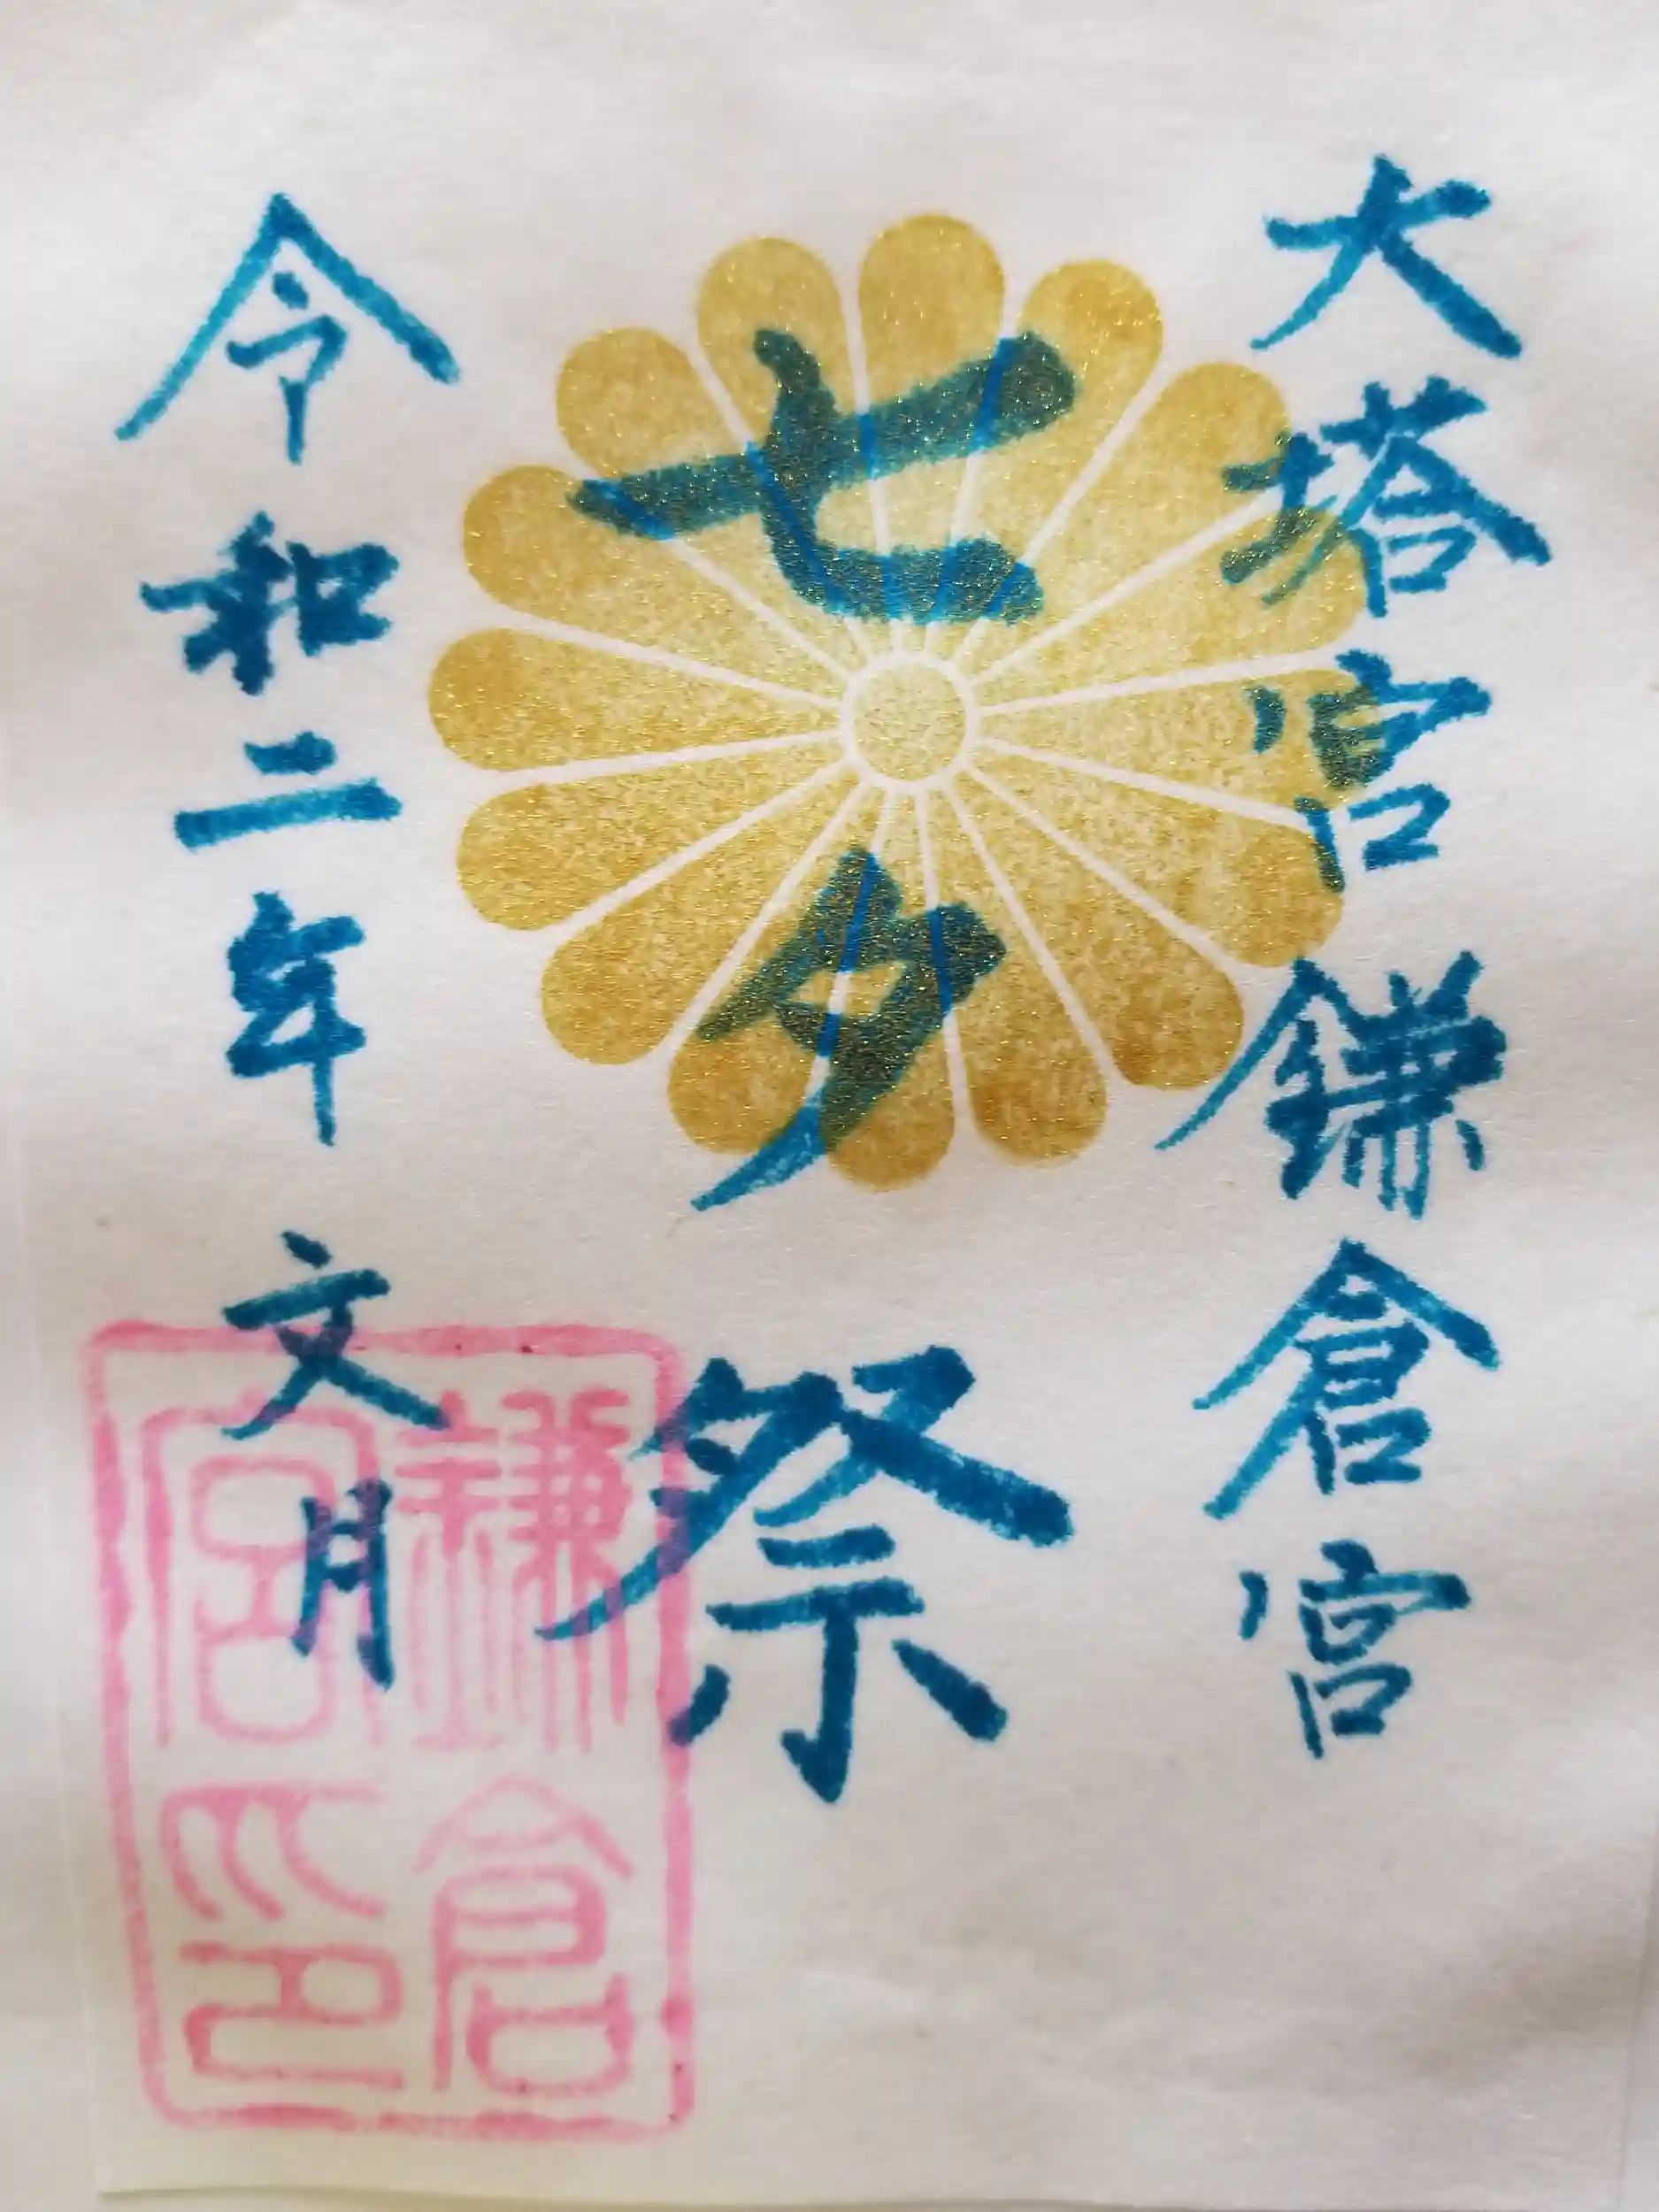 大塔宮鎌倉宮
七夕祭
令和二年文月
鎌倉
宮印